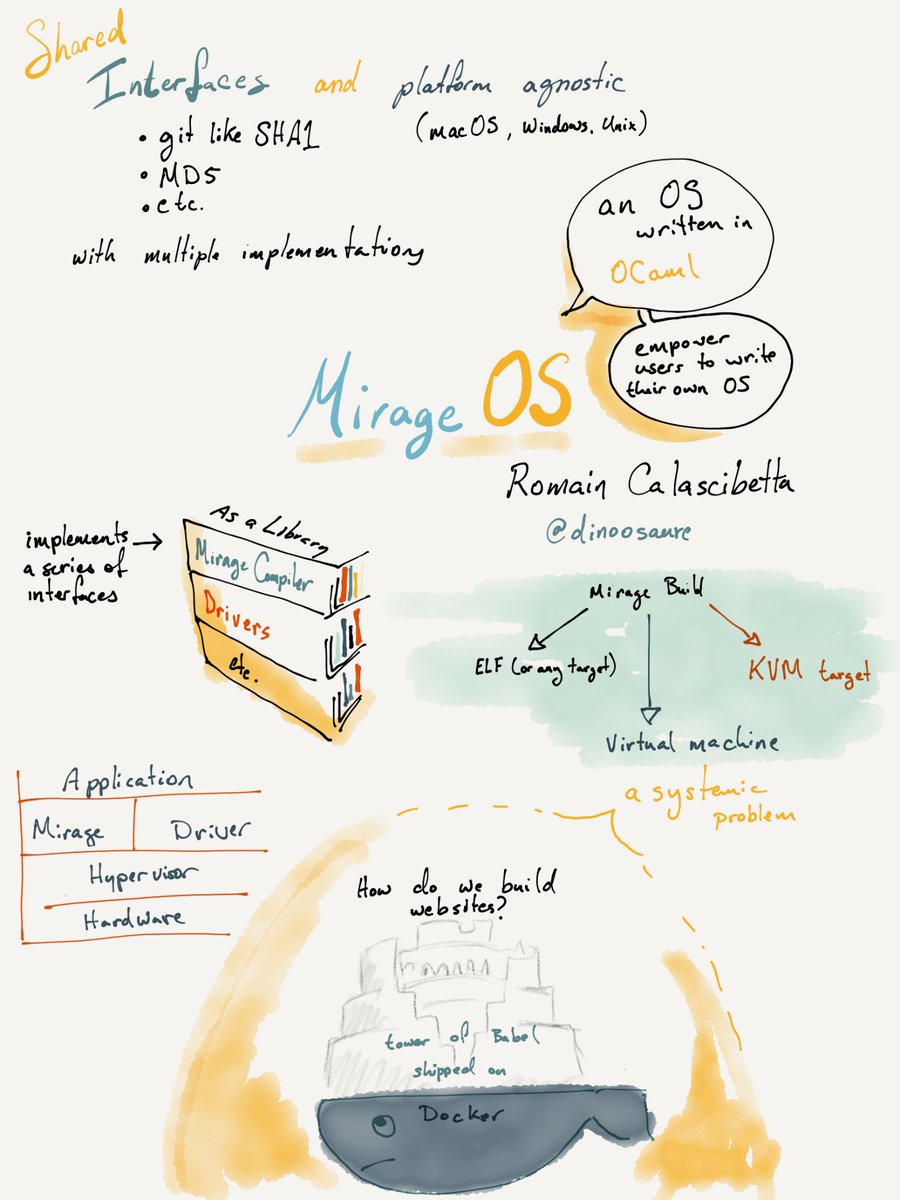 Shared
Interfaces and platform agnostic
• git like SHA1
(macOS, Windows, Unix)
• MD5
• etc.
with multiple implementations
an OS
written in
OCaml
empower
users to write
their own OS
Mirage OS
Romain Calascibetta
@dinoosaure
implements
a series of
interfaces
As a Library
Mirage Compiler
Drivers
etc.
Mirage Build
ELF (or any target)
KVM target
Virtual machine
a systemic
problem
Application
Mirage
Driver
Hypervisor
Hardware
How do we build
websites?
tower of Babel
shipped on
Docker